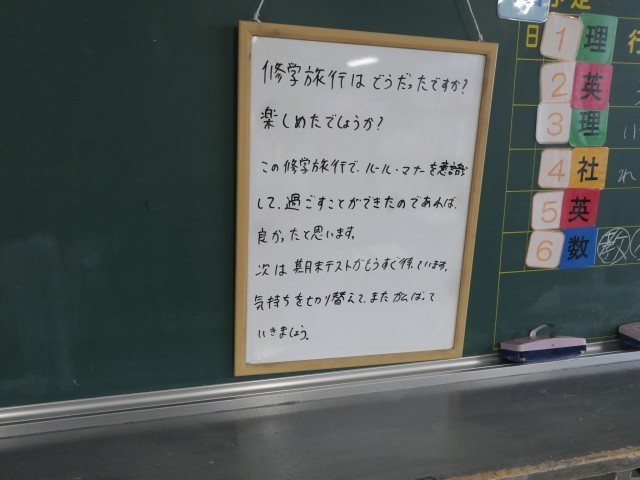 修学旅行はどうだったですか?
楽しめたでしょうか?
この修学旅行で、ルール・マナーを意識
して、過ごすことができたのであれば、
良かったと思います。
次は期末テストがもうすぐ待っています。
気持ちを切り替えて、またがんばって
いきましょう。
日
1 理
2 英
3 理
4 社
5 英
6 数